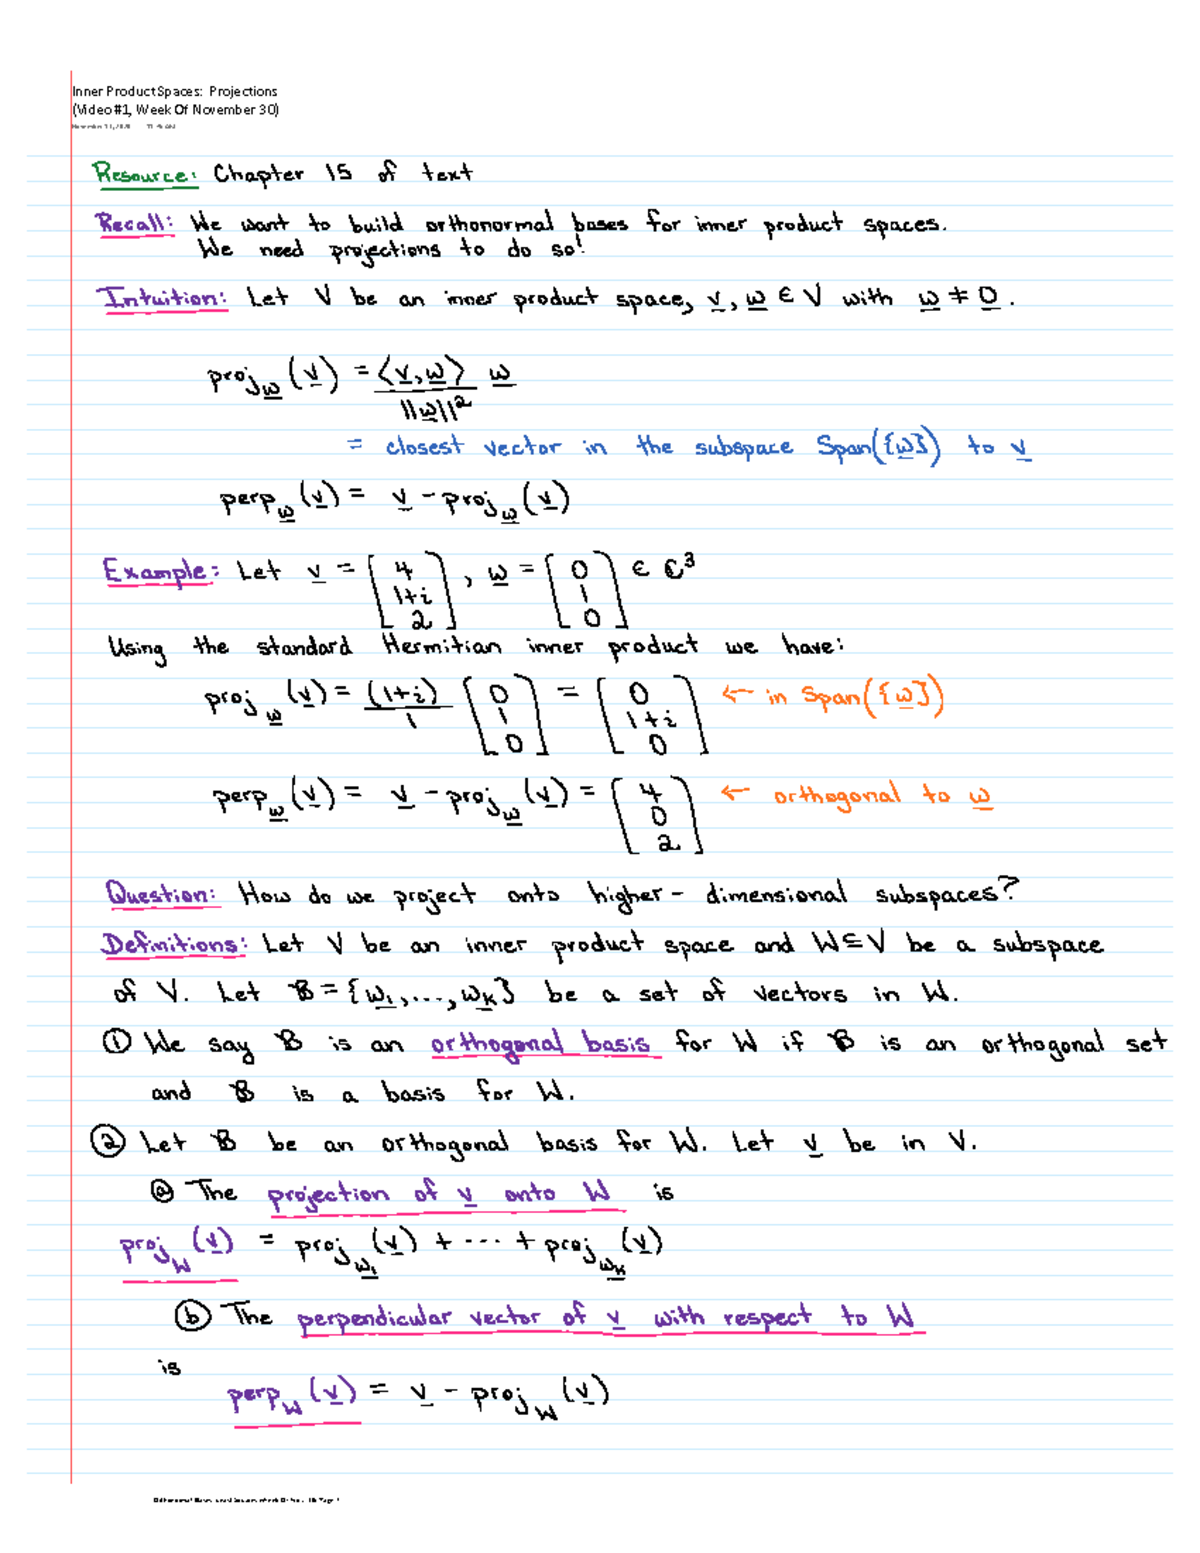 Inner Product Spaces: Projections
(Video #1, Week Of November 30)
Resource: Chapter 15 of text
Recall: We want to build orthonormal bases for inner product spaces.
We need projections to do so!
Intuition: Let V be an inner product space, v, w ∈ V with w ≠ 0.
proj_w (v) = <v, w> / ||w||² w
= closest vector in the subspace Span({w}) to v
perp_w (v) = v - proj_w (v)
Example: Let v = [4, 1+i, 2], w = [0, 1, 0] ∈ ℂ³
Using the standard Hermitian inner product we have:
proj_w (v) = (1+i) / 1 [0, 1, 0] = [0, 1+i, 0] ← in Span({w})
perp_w (v) = v - proj_w (v) = [4, 0, 2] ← orthogonal to w
Question: How do we project onto higher-dimensional subspaces?
Definitions: Let V be an inner product space and W ⊆ V be a subspace
of V. Let B = {w₁, ..., w_k} be a set of vectors in W.
① We say B is an orthogonal basis for W if B is an orthogonal set
and B is a basis for W.
② Let B be an orthogonal basis for W. Let v be in V.
ⓐ The projection of v onto W is
proj_W (v) = proj_w₁ (v) + ... + proj_w_k (v)
ⓑ The perpendicular vector of v with respect to W
is
perp_W (v) = v - proj_W (v)